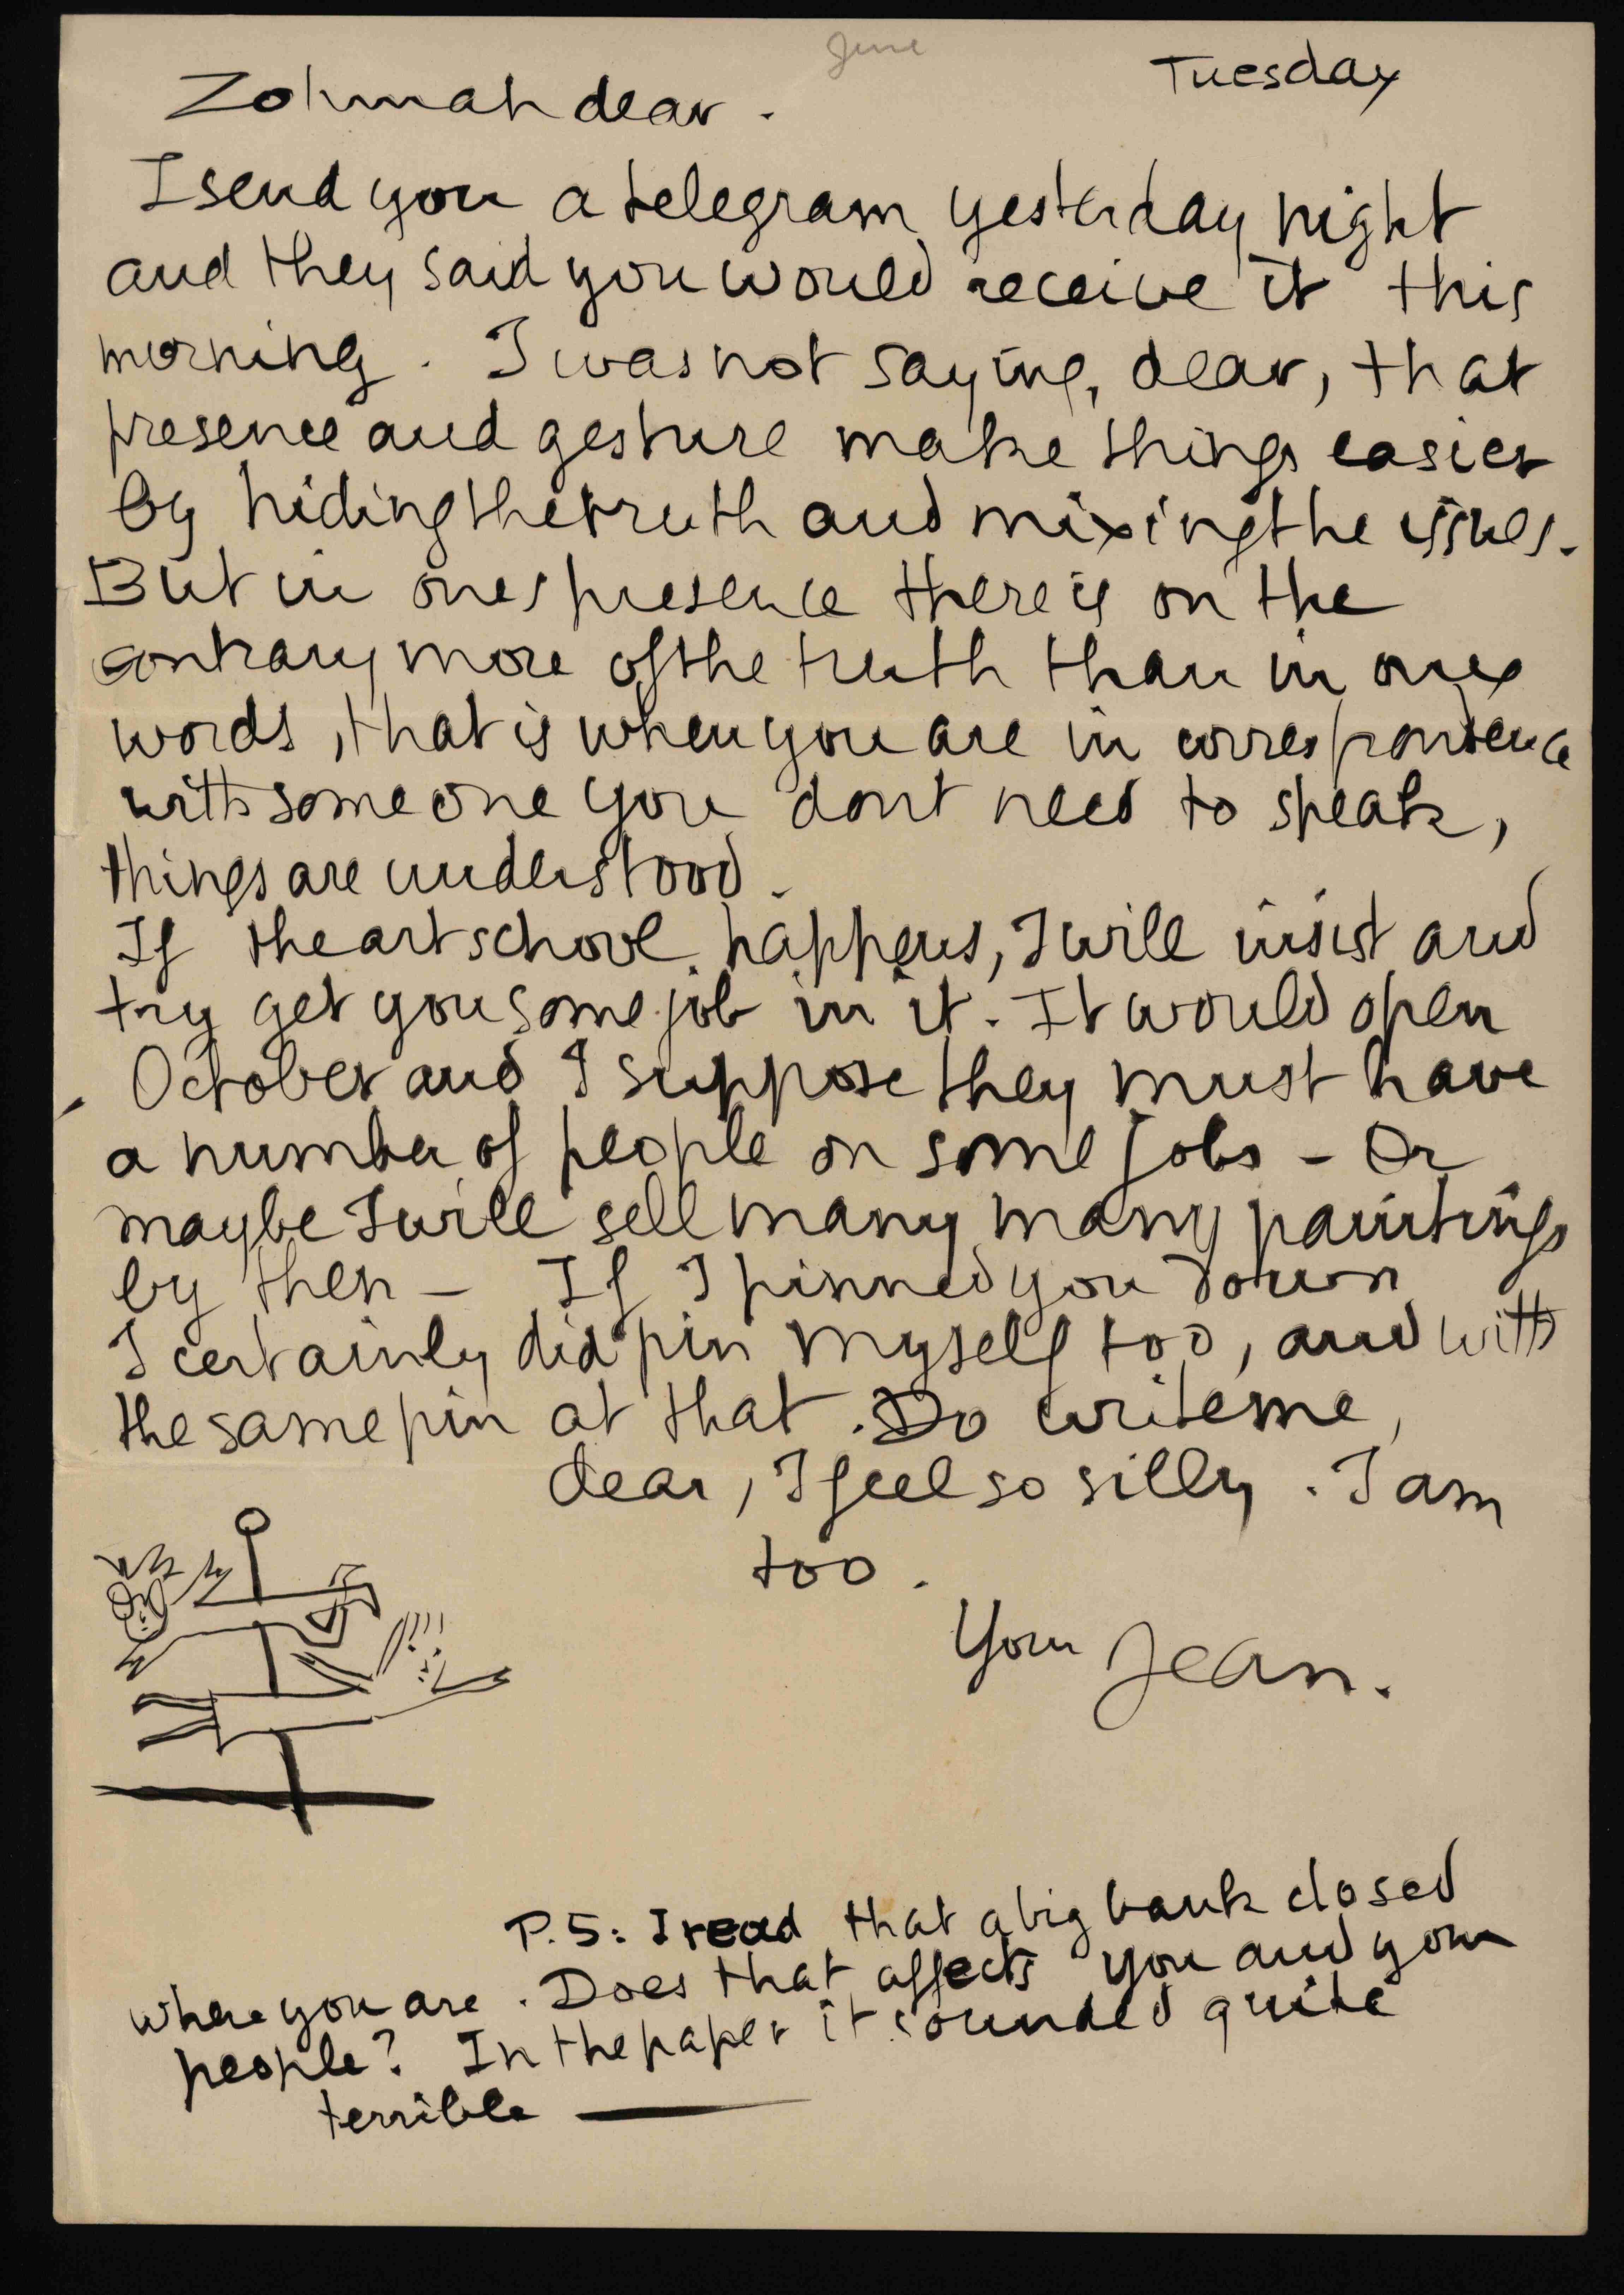 June
Tuesday
Zohmah dear.
I send you a telegram yesterday night
and they said you would receive it this
morning. I was not saying, dear, that
presence and gesture make things easier
by hiding the truth and mixing the issues.
But in ones presence there is on the
contrary more of the truth than in ones
words, that is when you are in correspondence
with some one you dont need to speak,
things are understood.
If the art school happens, I will insist and
try get you some job in it. It would open
October and I suppose they must have
a number of people on some jobs - Or
maybe I will sell many many paintings
by then - If I pinned you down
I certainly did pin myself too, and with
the same pin at that. Do write me,
dear, I feel so silly. I am
too.
Your Jean.
P.S: I read that a big bank closed
where you are. Does that affects you and your
people? In the paper it sounded quite
terrible —